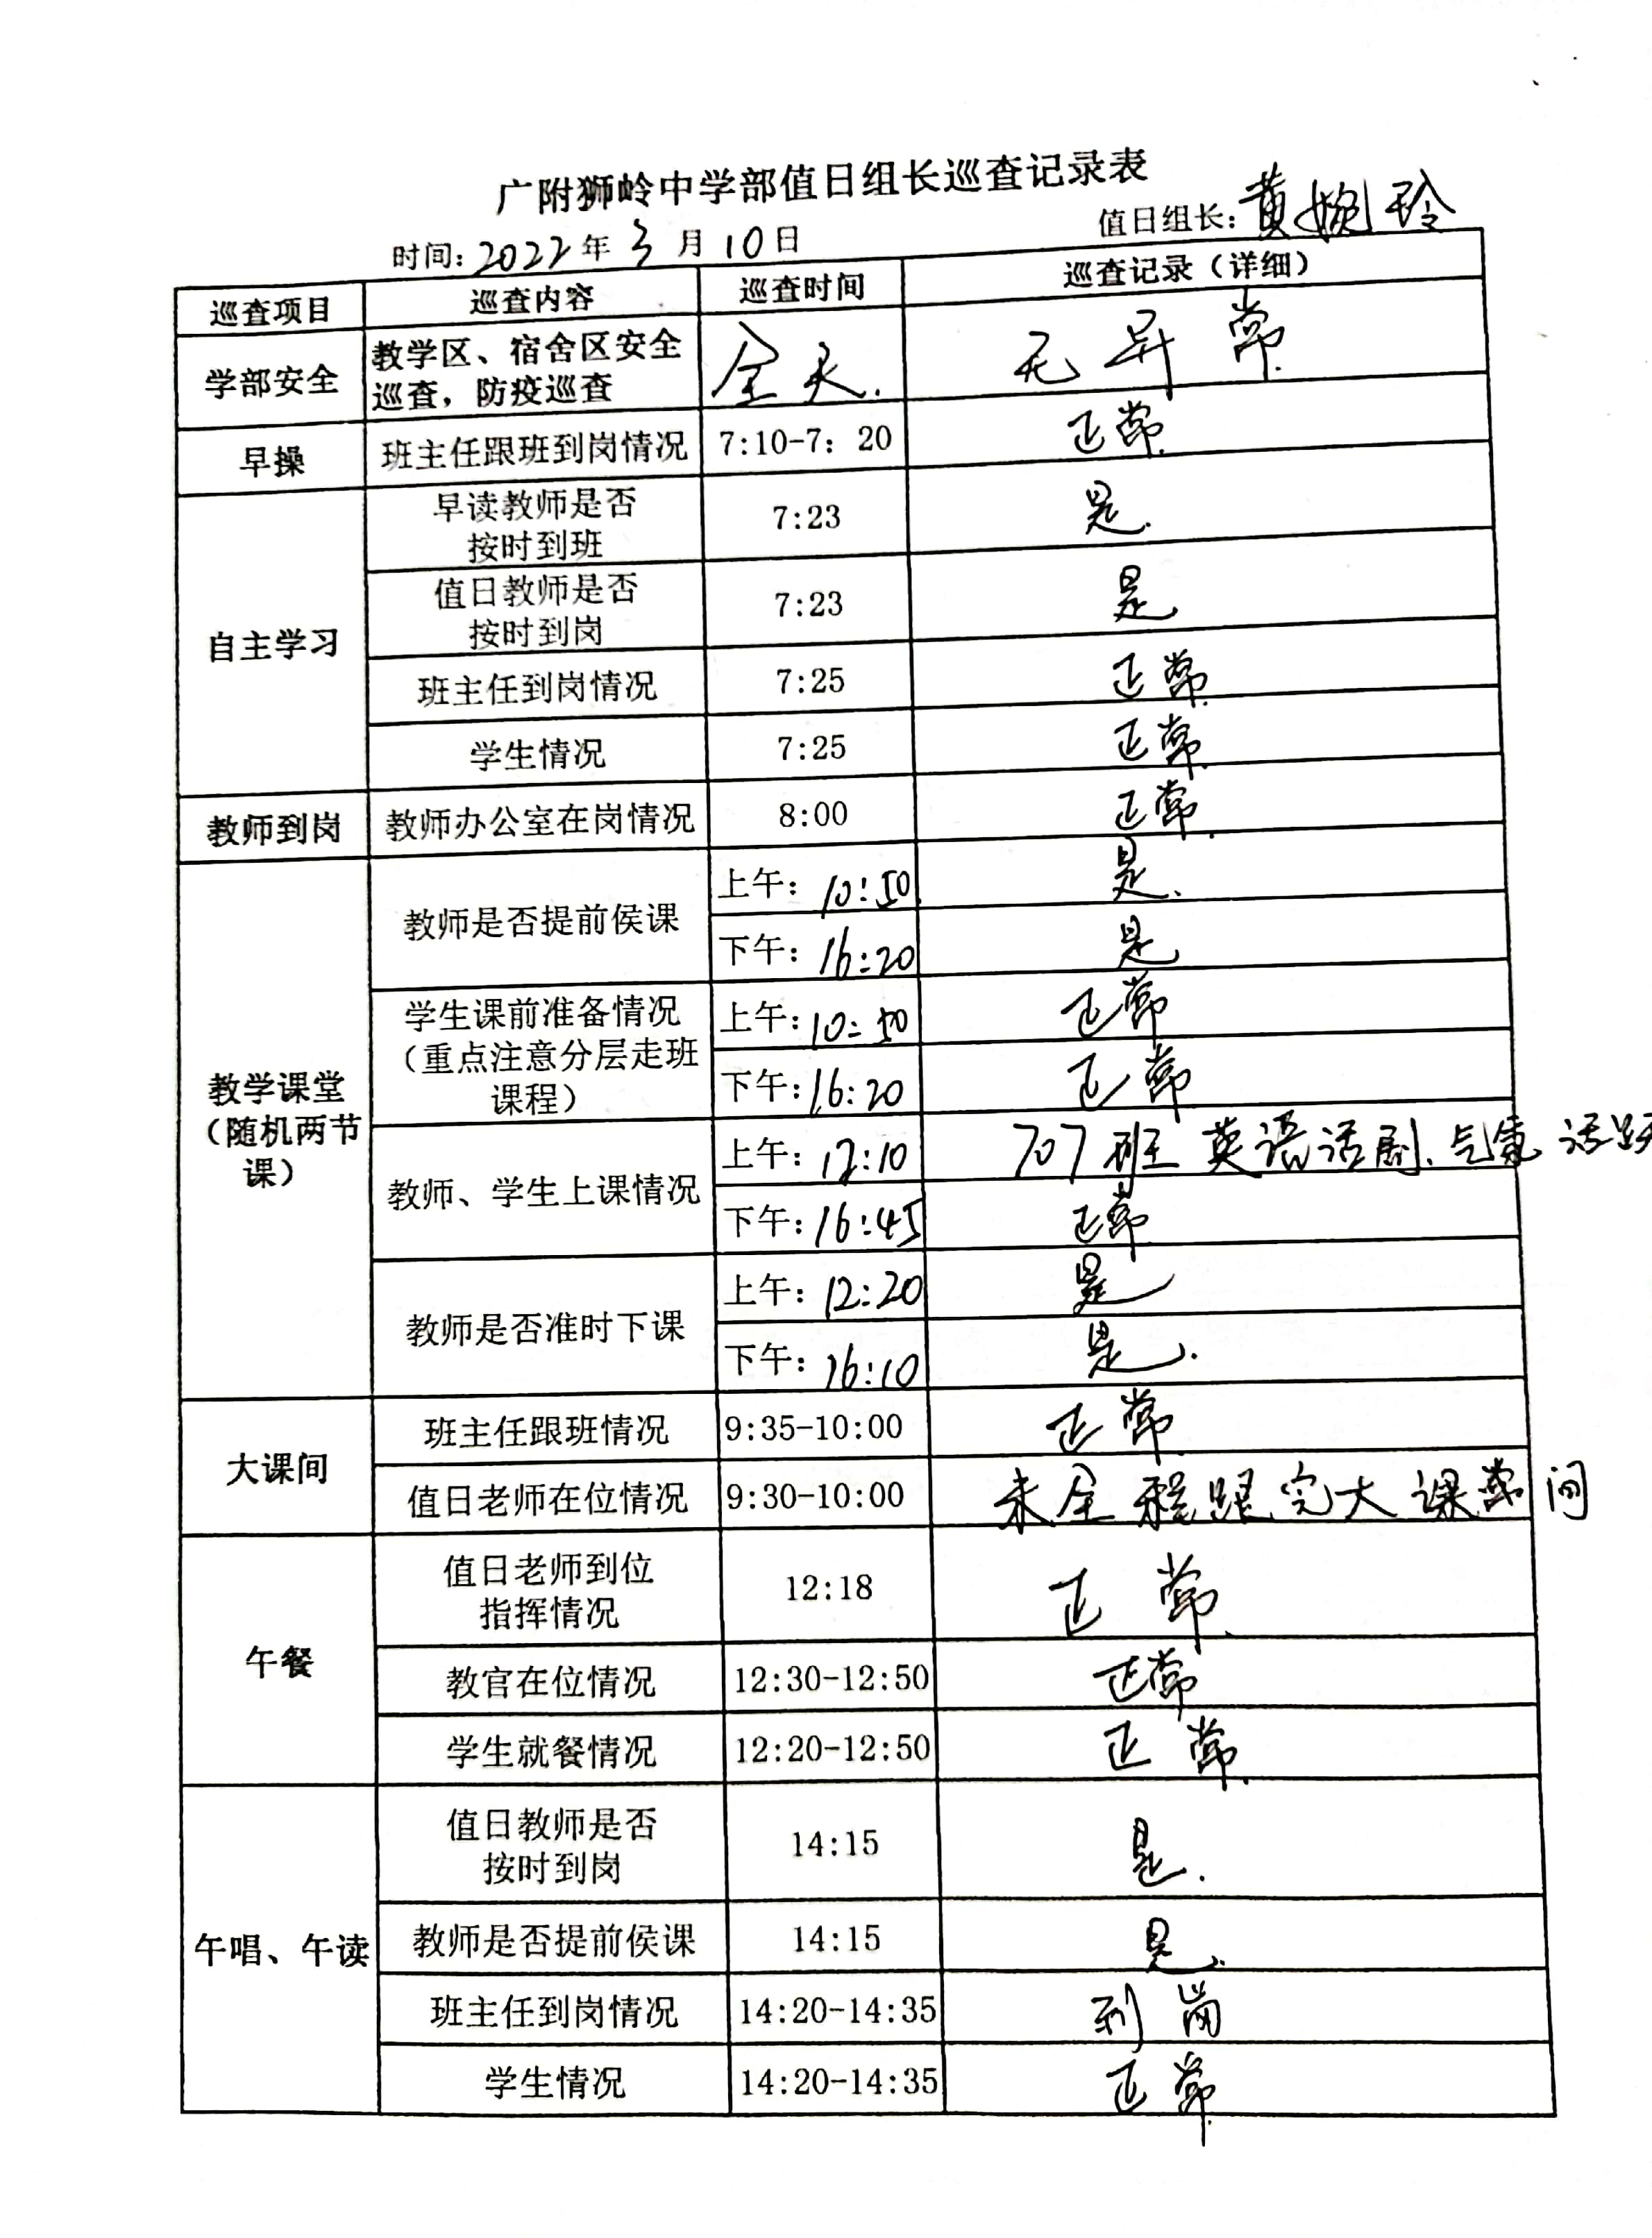 广附狮岭中学部值日组长巡查记录表
时间：2022年3月10日 值日组长：黄婉玲
巡查项目 巡查内容 巡查时间 巡查记录（详细）
学部安全 教学区、宿舍区安全
巡查，防疫巡查 全天. 无异常.
早操 班主任跟班到岗情况 7:10-7：20 正常.
自主学习
早读教师是否
按时到班 7:23 是.
值日教师是否
按时到岗 7:23 是
班主任到岗情况 7:25 正常.
学生情况 7:25 正常.
教师到岗 教师办公室在岗情况 8:00 正常.
教学课堂
（随机两节
课）
教师是否提前侯课
上午：10:50 是.
下午：16:20 是
学生课前准备情况
（重点注意分层走班
课程）
上午：10:50 正常
下午：16:20 正常
教师、学生上课情况
上午：12:10 707班 英语话剧.气氛活跃
下午：16:45 正常
教师是否准时下课
上午：12:20 是
下午：16:10 是.
大课间
班主任跟班情况 9:35-10:00 正常.
值日老师在位情况 9:30-10:00 未全程跟完大课间
午餐
值日老师到位
指挥情况 12:18 正常.
教官在位情况 12:30-12:50 正常
学生就餐情况 12:20-12:50 正常.
午唱、午读
值日教师是否
按时到岗 14:15 是.
教师是否提前侯课 14:15 是.
班主任到岗情况 14:20-14:35 到岗
学生情况 14:20-14:35 正常